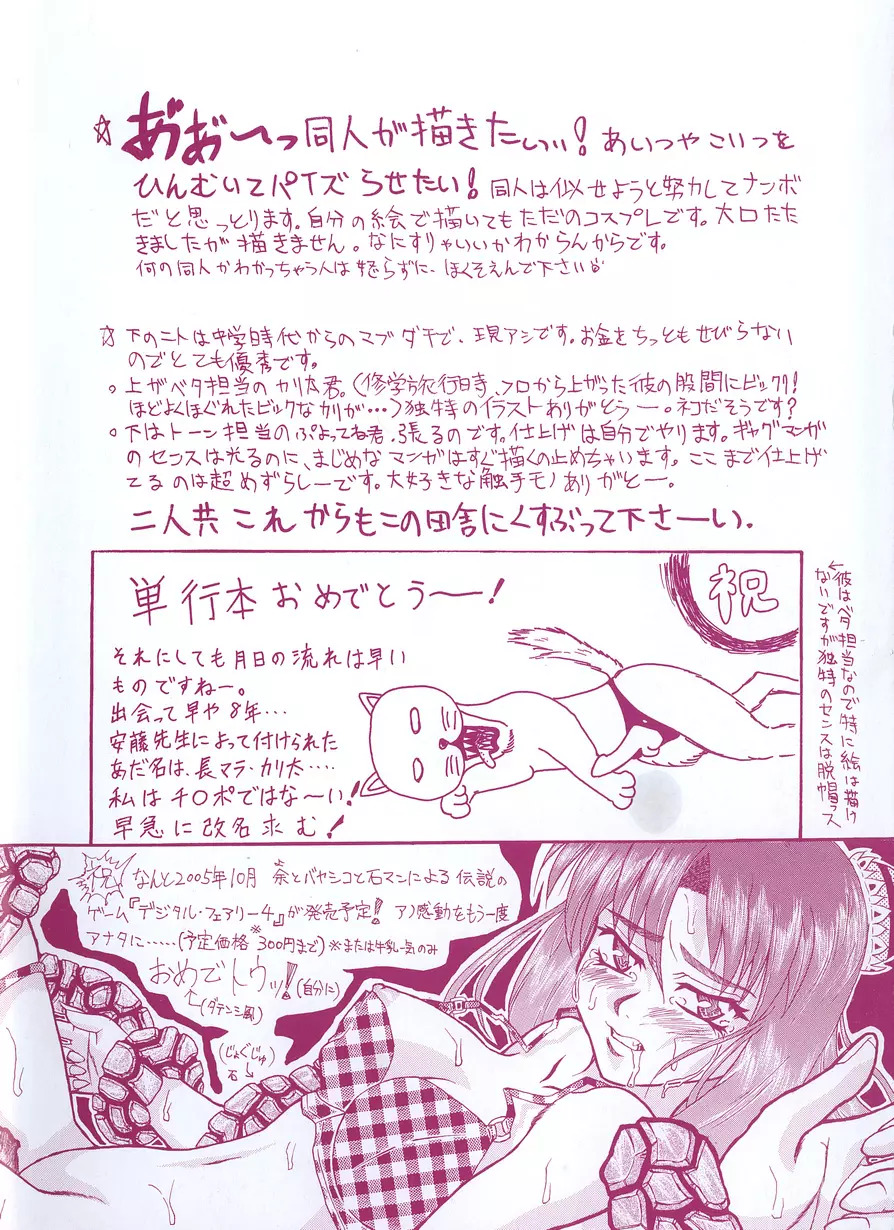 ☆ あ゛お゛〜っ同人が描きたいっ! あいつやこいつを
ひんむいてパイズらせたい! 同人は似せようと努力してナンボ
だと思っとります。自分の絵で描いてもただのコスプレです。大口たた
きましたが描きません。なにすりゃいいかわからんからです。
何の同人かわかっちゃう人は怒らずに、ほくそえんで下さい
☆ 下のニ人は中学時代からのマブダチで、現アシです。お金をちっともせびらない
のでとても優秀です。
○上がベタ担当のカリ太君。(修学旅行時、フロから上がった彼の股間にビックリ!
ほどよくほぐれたビックなカリが…)独特のイラストありがとうー。ネコだそうです?
○下はトーン担当のぷよってね君、張るのです。仕上げは自分でやります。ギャグマンガ
のセンスは光るのに、まじめなマンガはすぐ描くの止めちゃいます。ここまで仕上げ
てるのは超めずらしーです。大好きな触手モノありがとー。
二人共これからもこの田舎にくすぶって下さーい.
←彼はベタ担当なので特に絵は描け
ないですが独特のセンスは脱帽っス
単行本おめでとう〜!
祝
それにしても月日の流れは早い
ものですねー。
出会って早や8年…
安藤先生によって付けられた
あだ名は、長マラ・カリ太‥‥
私はチ〇ポではな〜い!
早急に改名求む!
祝
なんと2005年10月 茶とバヤシコと石マンによる伝説の
ゲーム『デジタル・フェアリー4』が発売予定! アノ感動をもう一度
アナタに……(予定価格※300円まで)※または牛乳一気のみ
おめでトウッ!(自分に)
(ダテンシ風)
(じゅぐじゅ)
石